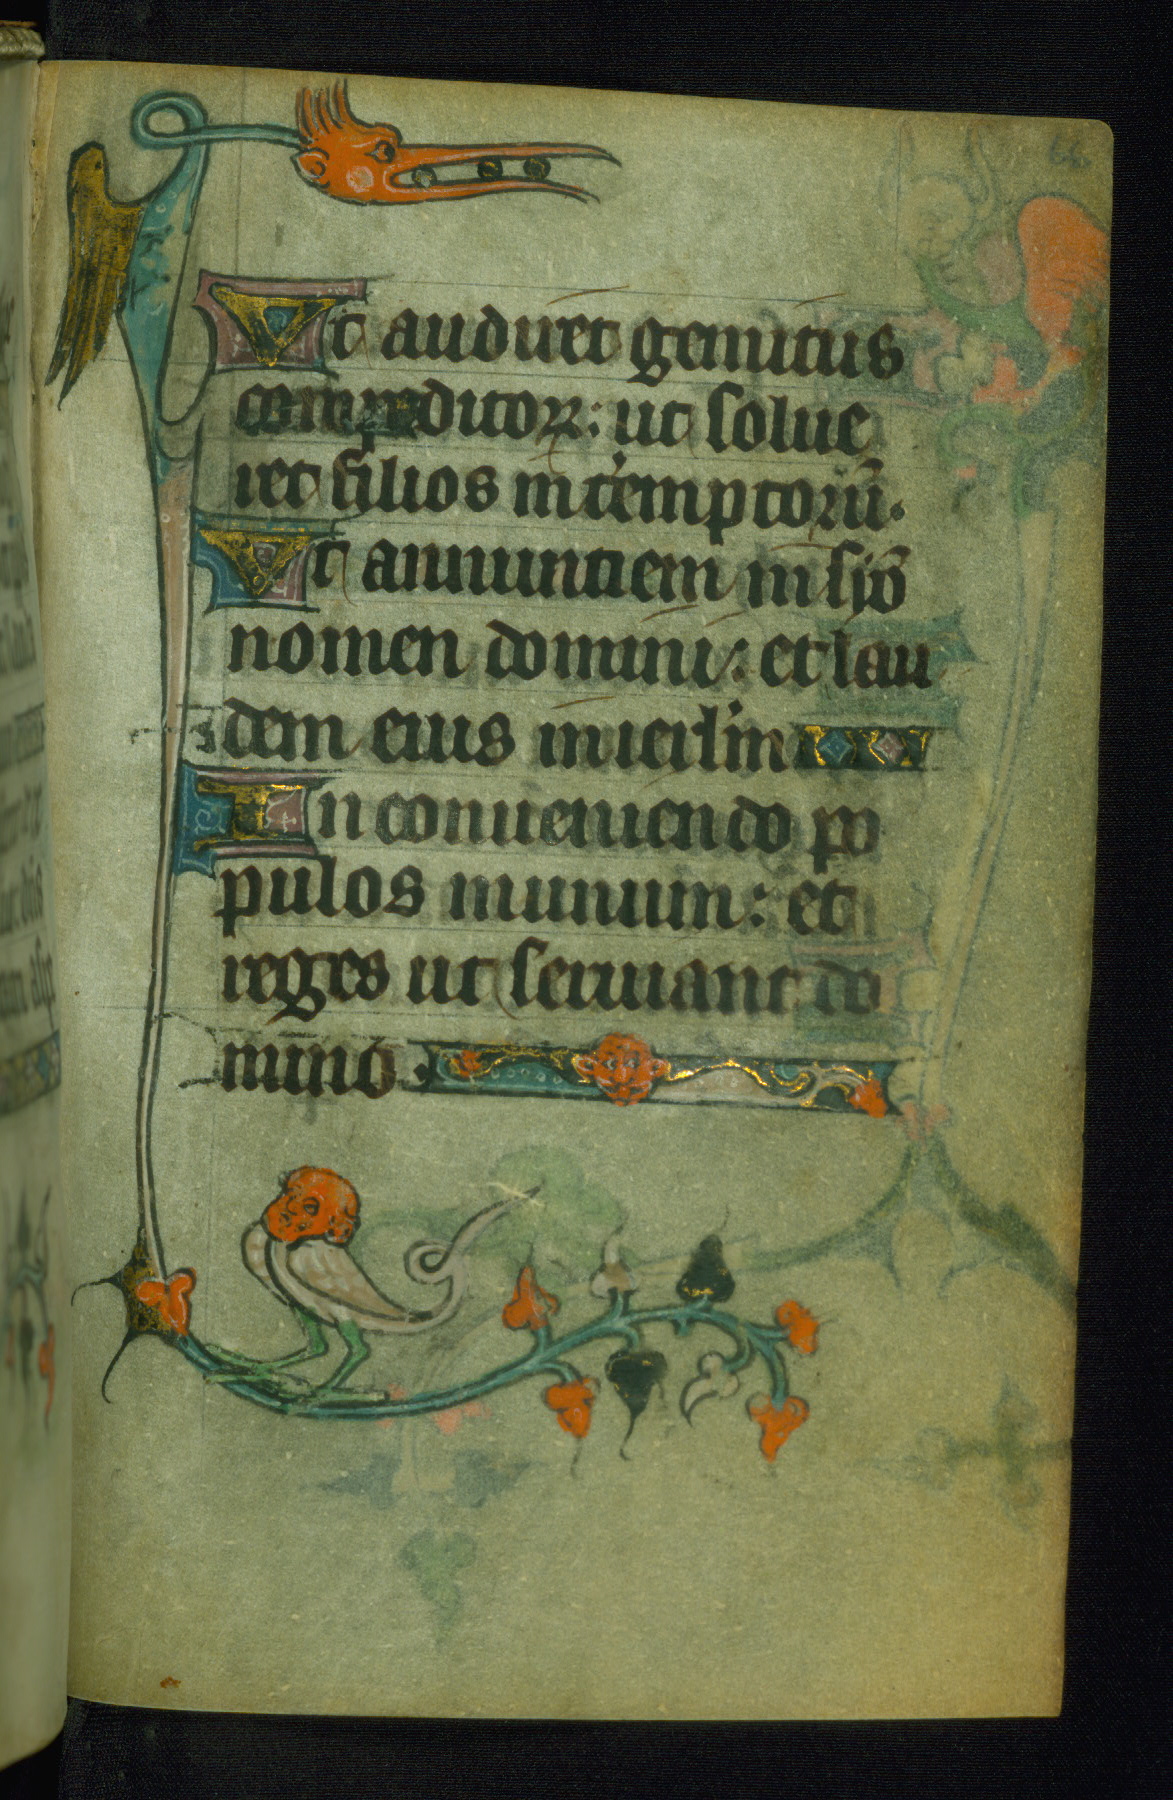 66
Ut audiret gemitus
compeditoꝝ: ut solue
ret filios int'emptorū.
Ut annuntiem in syō
nomen domini: et lau
dem eius in ierl'm
In conueniendo po
pulos in unum: et
reges ut seruiant do
mino.